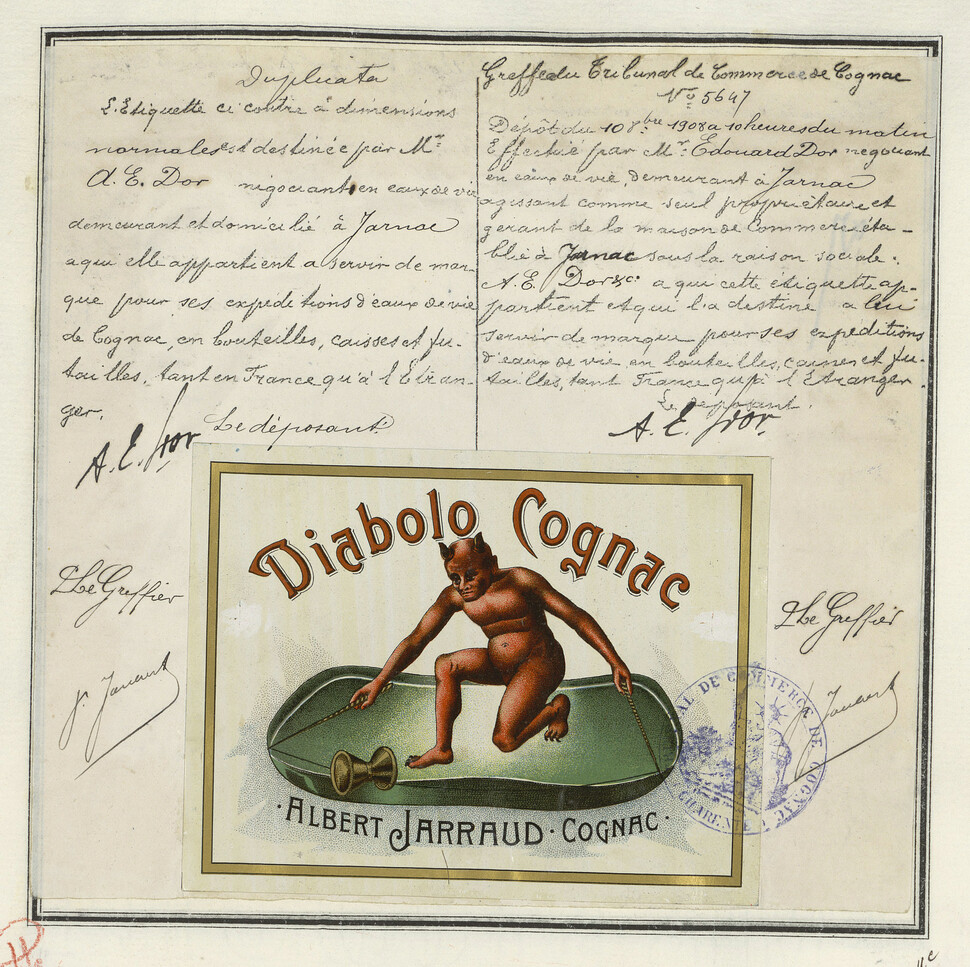 Duplicata
L'Etiquette ci contre à dimensions
normales est destinée par Mr
A. E. Dor négociant en eaux de vie
demeurant et domicilié à Jarnac
a qui elle appartient a servir de mar-
que pour ses expeditions d'eaux de vie
de Cognac, en bouteilles, caisses et fu-
tailles, tant en France qu'à l'Etran-
ger.
Le déposant
A. E. Dor
Greffe du Tribunal de Commerce de Cognac
No 5647
Dépôt du 10 8bre 1908 a 10 heures du matin
Effectué par Mr Edouard Dor negociant
en eaux de vie, demeurant à Jarnac
agissant comme seul propriétaire et
gerant de la maison de Commerce éta-
blie à Jarnac sous la raison sociale.
A. E. Dor & Co a qui cette étiquette ap-
partient et qui l'a destiné a lui
servir de marque pour ses expeditions
d'eaux de vie en bouteilles, caisses et fu-
tailles, tant France qu'à l'Etranger
Le deposant.
A. E. Dor
Diabolo Cognac
Le Greffier
Le Greffier
·ALBERT JARRAUD·COGNAC·
AL DE COMMERCE DE COGNAC
CHARENTE